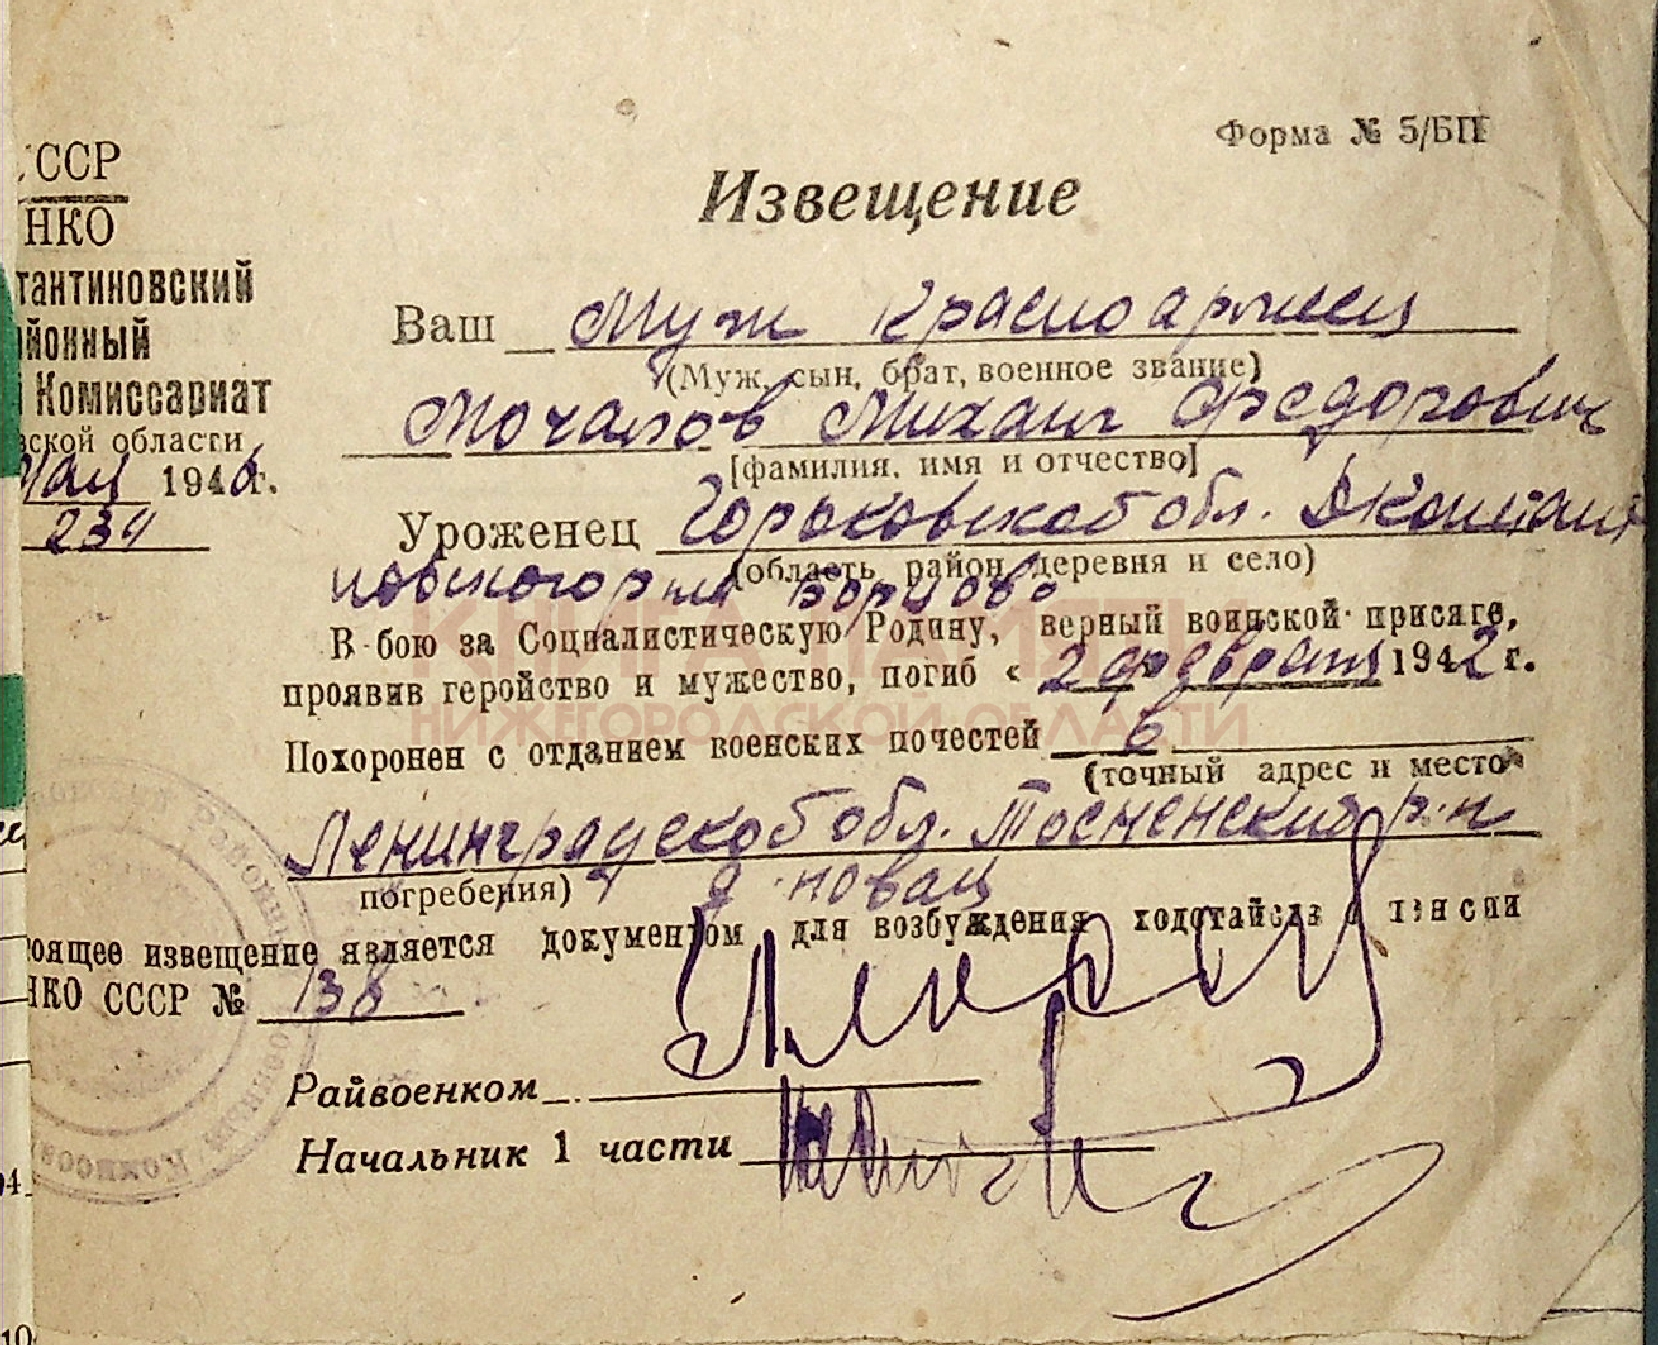 Форма № 5/БП
Извещение
СССР
НКО
тантиновский
йонный
Комиссариат
вской области
мая 1946 г.
234
Ваш Муж красноармеец
(Муж, сын, брат, военное звание)
Мочалов Михаил Федорович
[фамилия, имя и отчество]
Уроженец Горьковской обл. Дконстант
(область, район, деревня и село)
иновского р-на
В бою за Социалистическую Родину, верный воинской присяге,
проявив геройство и мужество, погиб « 2 февраля 1942 г.
Похоронен с отданием военских почестей в
(точный адрес и место
Ленинградской обл. Тосненский р-н
погребения) д новац
тоящее извещение является документом для возбуждения ходотайств о пенсии
НКО СССР № 138
Райвоенком
Начальник 1 части
КНИГА ПАМЯТИ
НИЖЕГОРОДСКОЙ ОБЛАСТИ